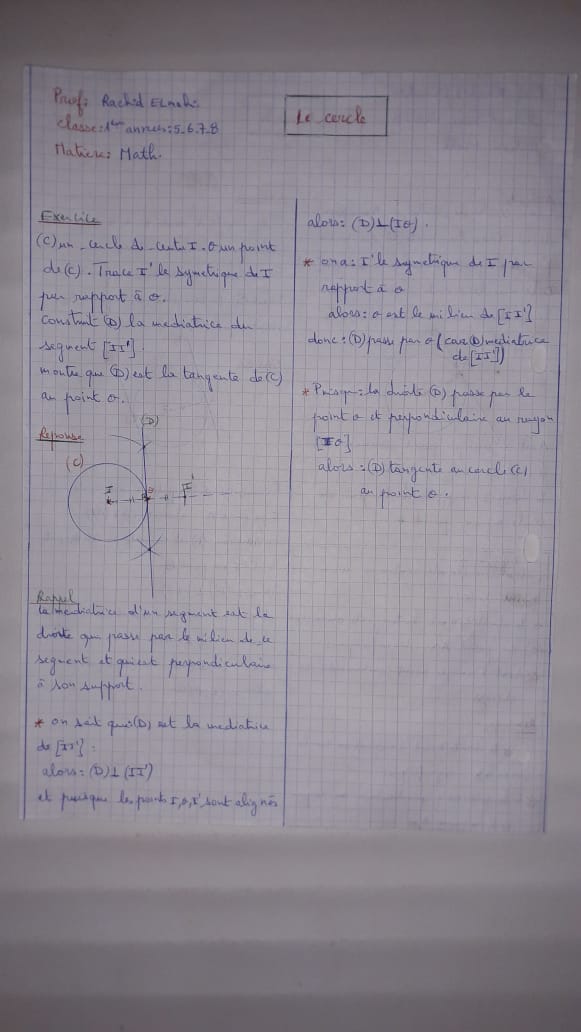 Prof: Rachid ELmahi
Classe: 1ere annees: 5.6.7.8
Matiere: Math.
Le cercle
Exercice
(C) un cercle de centre I. O un point
de (C). Trace I' le symetrique de I
par rapport à O.
Construit (D) la mediatrice du
segment [II']
montre que (D) est la tangente de (C)
au point O.
Reponse
(D)
(C)
I
O
I'
Rappel
la mediatrice d'un segment est la
droite qui passe par le milieu de ce
segment et qui est perpondiculaire
à son support.
* on sait que (D) est la mediatrice
de [II'] :
alors: (D)⊥(II')
et puisque les points I,O,I' sont alignés
alors: (D)⊥(IO).
* on a: I' le symetrique de I par
rapport à O
alors: O est le milieu de [II']
donc: (D) passe par O (car (D) mediatrice
de [II'])
* Puisque: la droite (D) passe par le
point O et perpondiculaire au rayon
[IO]
alors: (D) tangente au cercle (C)
au point O.